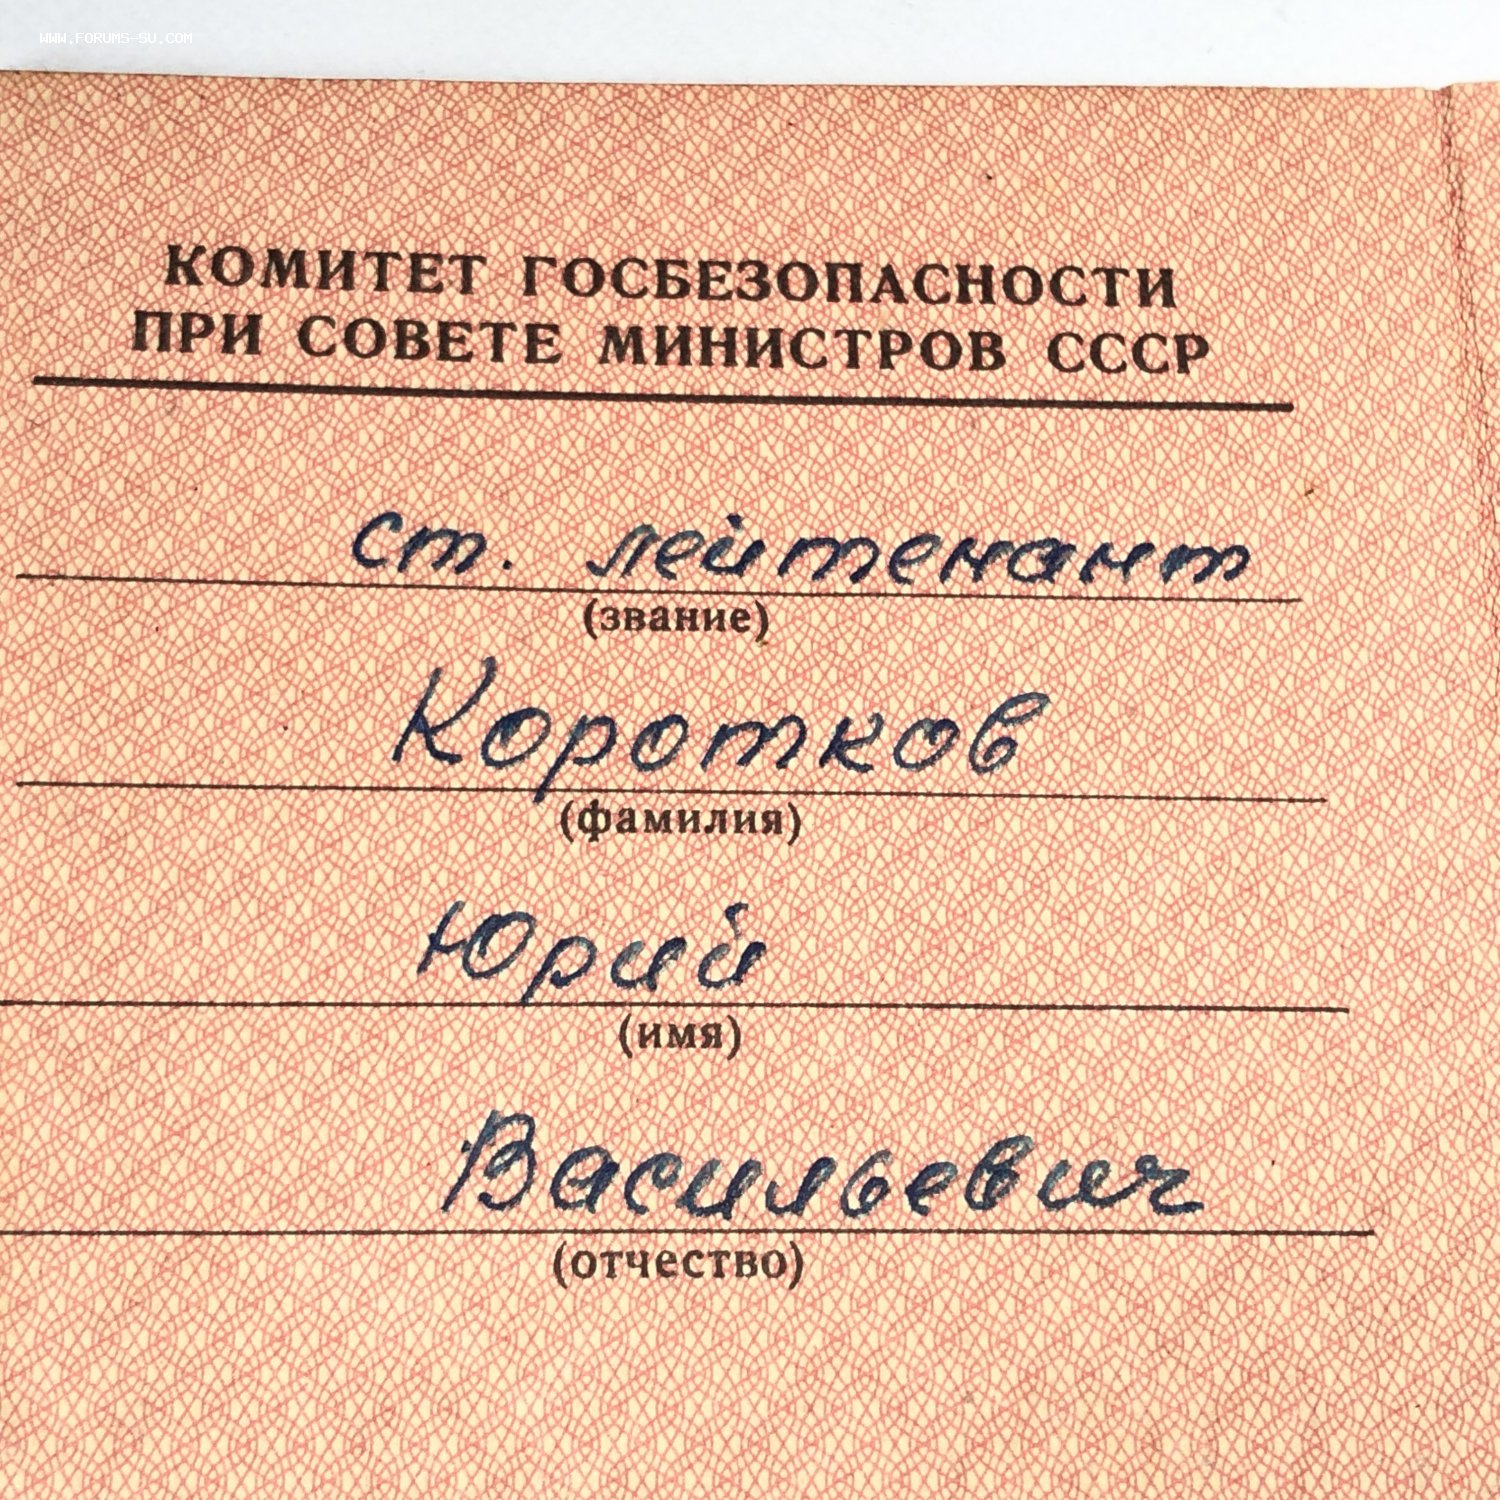 WWW.FORUMS-SU.COM
КОМИТЕТ ГОСБЕЗОПАСНОСТИ
ПРИ СОВЕТЕ МИНИСТРОВ СССР
ст. лейтенант
(звание)
Коротков
(фамилия)
Юрий
(имя)
Васильевич
(отчество)